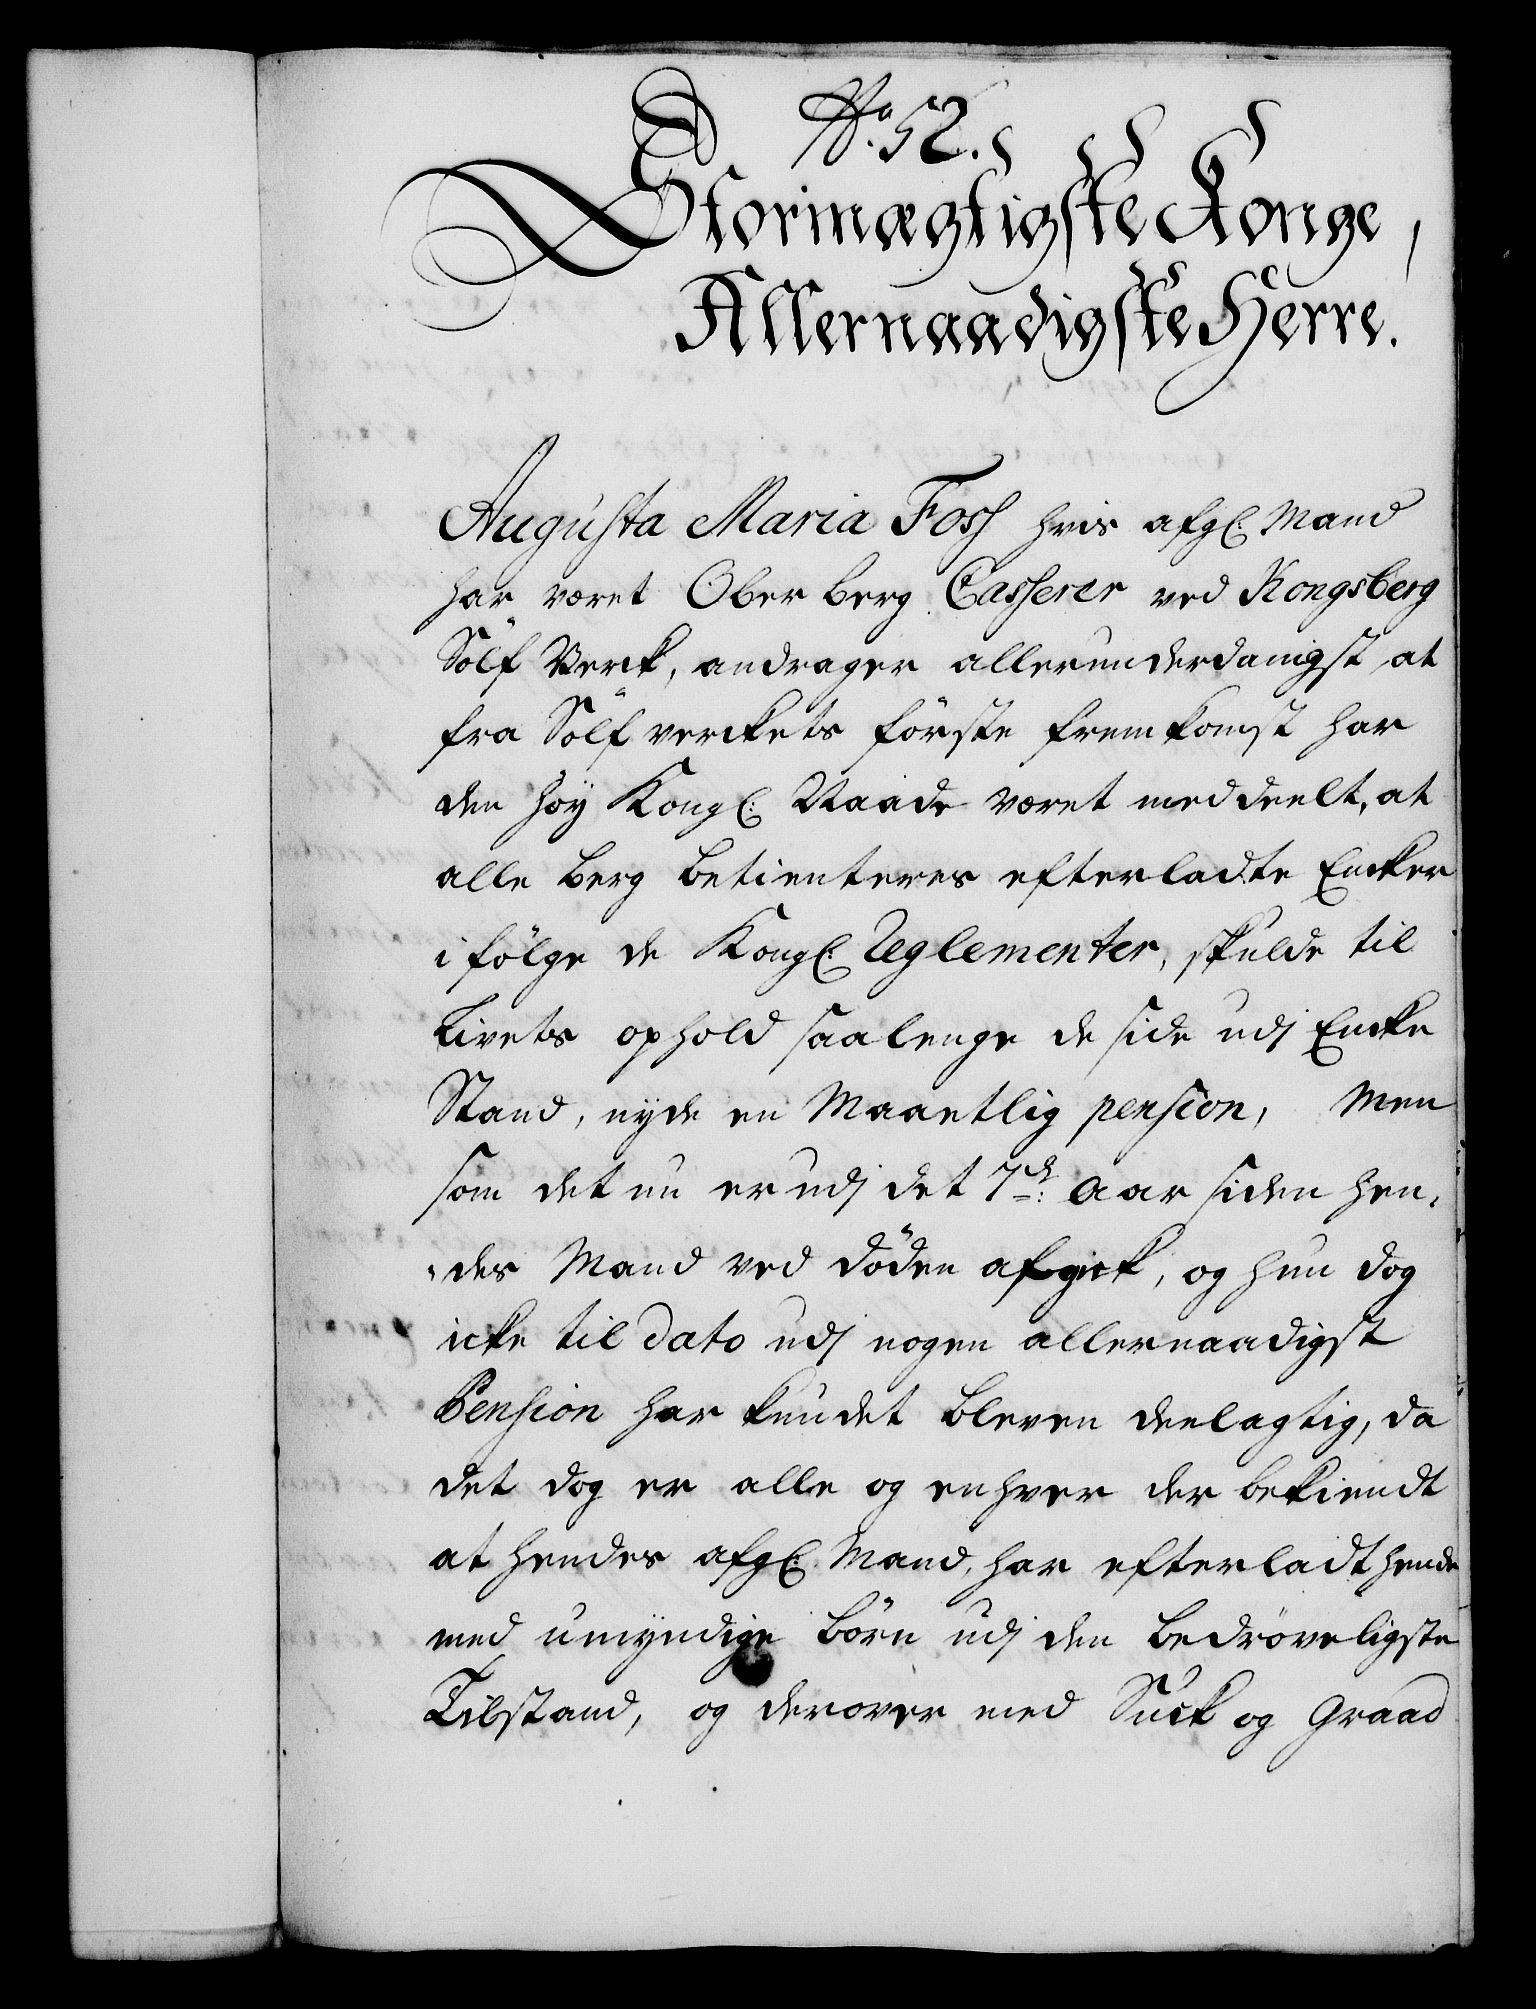 No. 52.
Stormægtigste Konge,
Allernaadigste Herre.
Augusta Maria Foss hvis afgl: Mand
har været Ober berg Casserer ved Kongsberg
Sölf Verck, andrager allerunderdanigst at
fra Sölf verckets förste fremkomst har
den höy Kongl: Naade været meddeelt, at
alle berg betienteres efterladte Encker
i fölge de Kongl: Reglementer, skulde til
Livets ophold saalenge de side udj Encke
Stand, nyde en Maanetlig pension, Men
som det nu er udj det 7de: Aar siden hen,
,des Mand ved döden afgick, og hun dog
icke til dato udj nogen allernaadigst
Pension har kundet bleven deelagtig, da
det dog er alle og enhver der bekiendt
at hendes afgl: Mand, har efterladt hende
med umyndige börn udj den bedröveligste
Tilstand, og derover med Suck og Graad